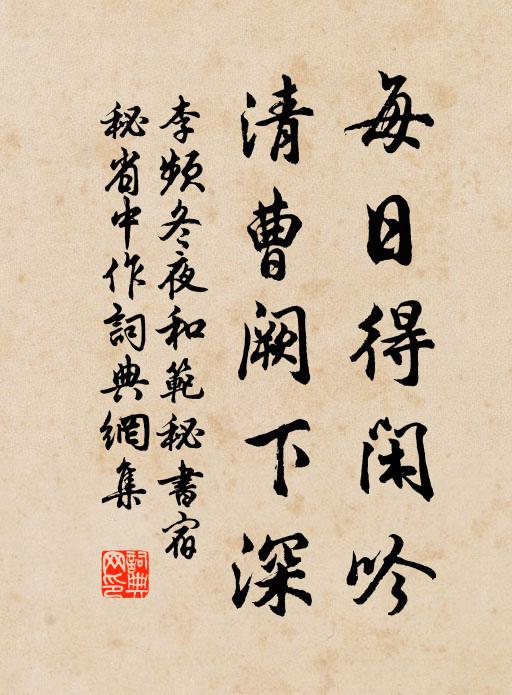 每日得閑吟
清曹闕下深
李頻冬夜和範秘書宿
秘省中作詞典網集
詞典網印